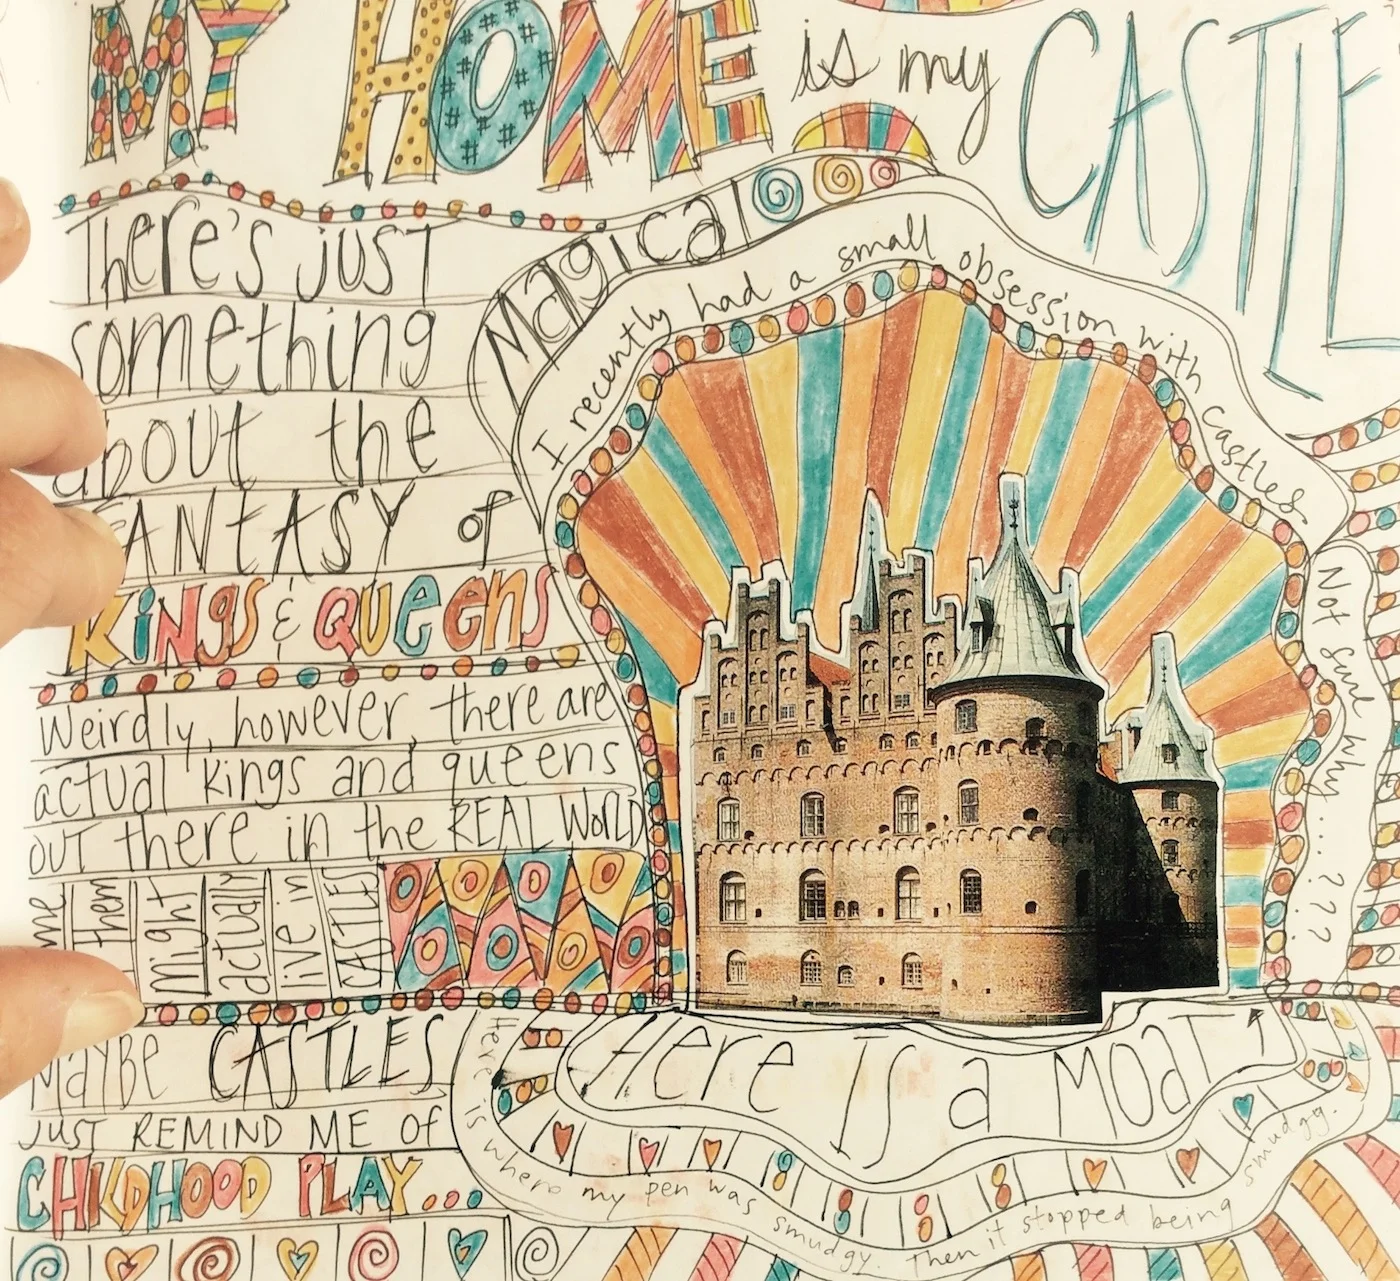 MY HOME is my CASTLE
There's just
something
about the
FANTASY of
KiNgs & QUEEnS
Weirdly, however, there are
actual kings and queens
out there in the REAL WORLD
them
might
actually
live in
CASTLES
MAYBE CASTLES
JUST REMIND ME of
CHILDHOOD PLAY...
Magical
I recently had a small obsession with castles
Not sure why....???
Here Is a Moat
Here is where my pen was smudgy. Then it stopped being smudgy.